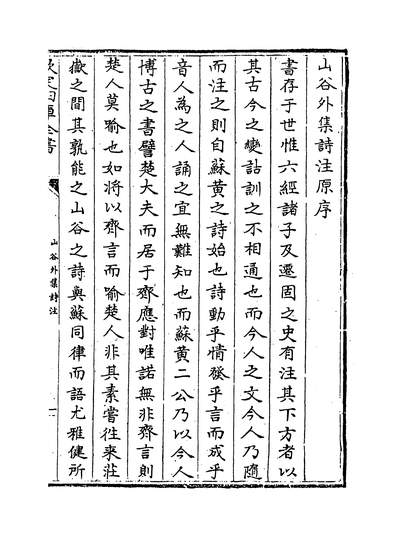 山谷外集詩注原序
書存于世惟六經諸子及遷固之史有注其下方者以
其古今之變詁訓之不相通也而今人之文今人乃隨
而注之則自蘇黄之詩始也詩動乎情發乎言而成乎
音人為之人誦之宜無難知也而蘇黄二公乃以今人
博古之書譬楚大夫而居于齊應對唯諾無非齊言則
楚人莫喻也如將以齊言而喻楚人非其素嘗往來莊
嶽之間其孰能之山谷之詩與蘇同律而語尤雅健所
欽定四庫全書
山谷外集詩注
一